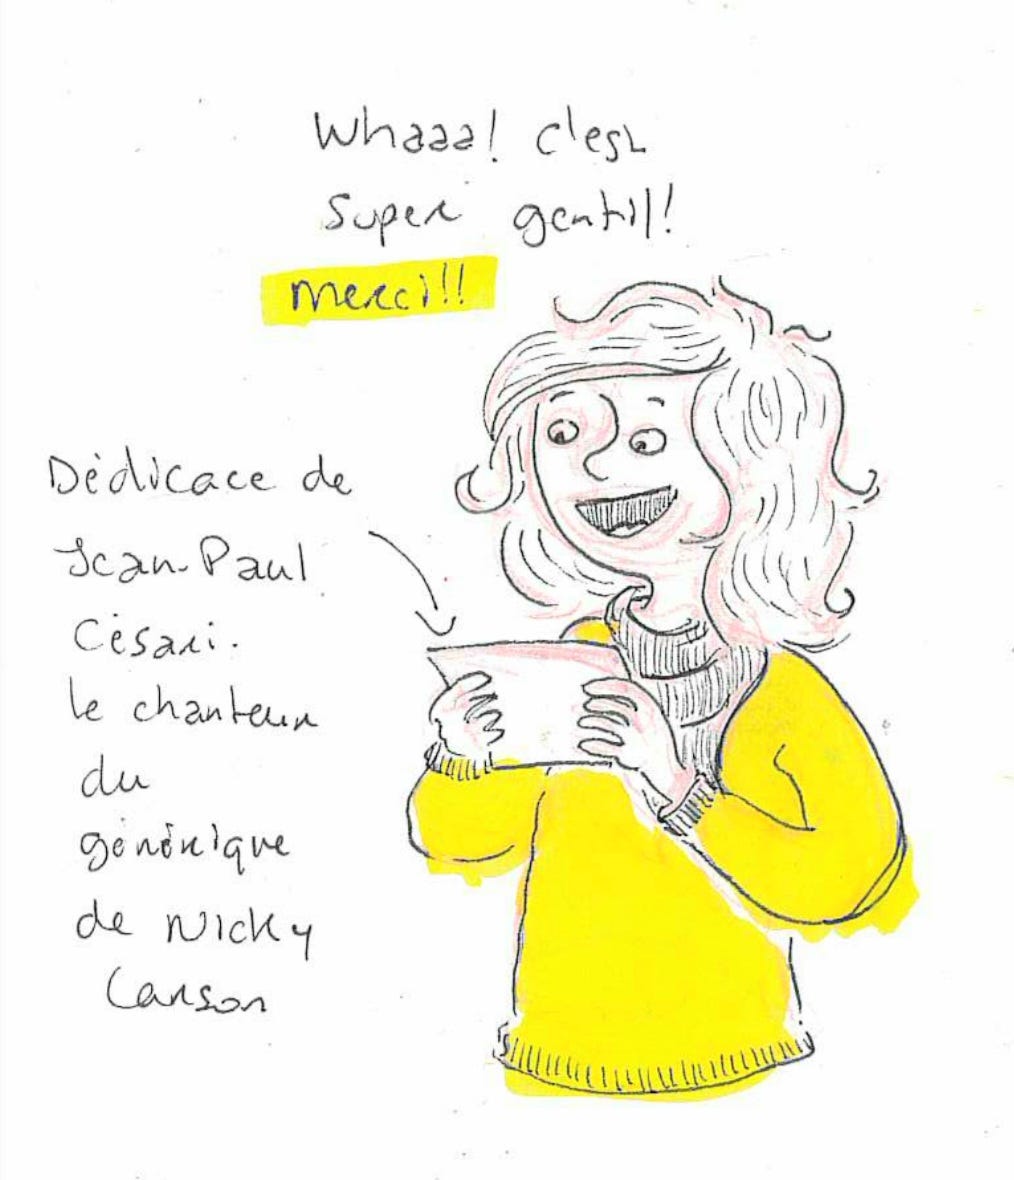 Whaaa! c'est
super gentil!
merci!!
Dédicace de
Jean-Paul
Césari.
le chanteur
du
générique
de Nicky
Larson